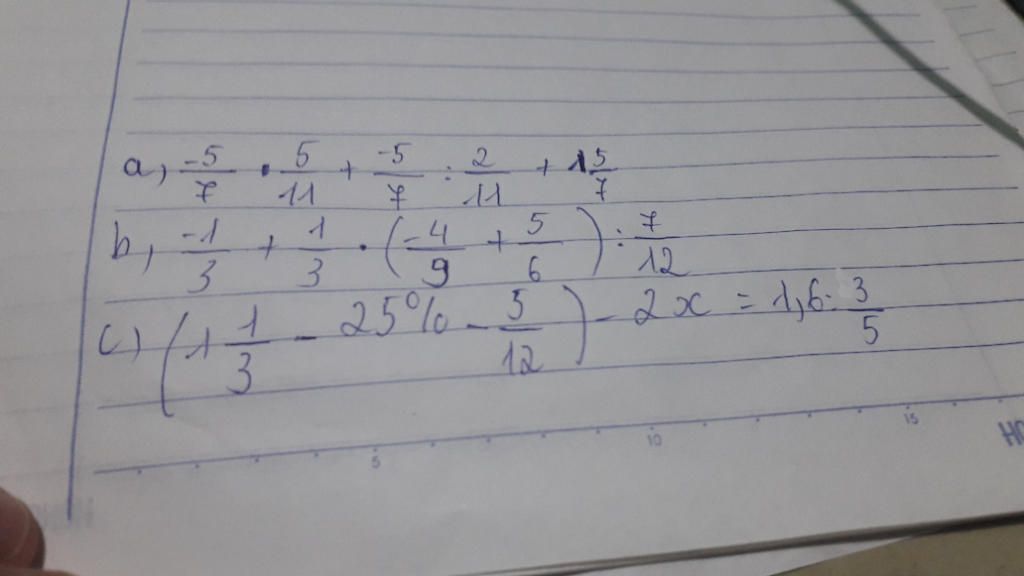 a, -5/7 . 5/11 + -5/7 : 2/11 + 1 5/7
b, -1/3 + 1/3 . (-4/9 + 5/6) : 7/12
c) (1 1/3 - 25% - 5/12) - 2x = 1,6 : 3/5
5 10 15